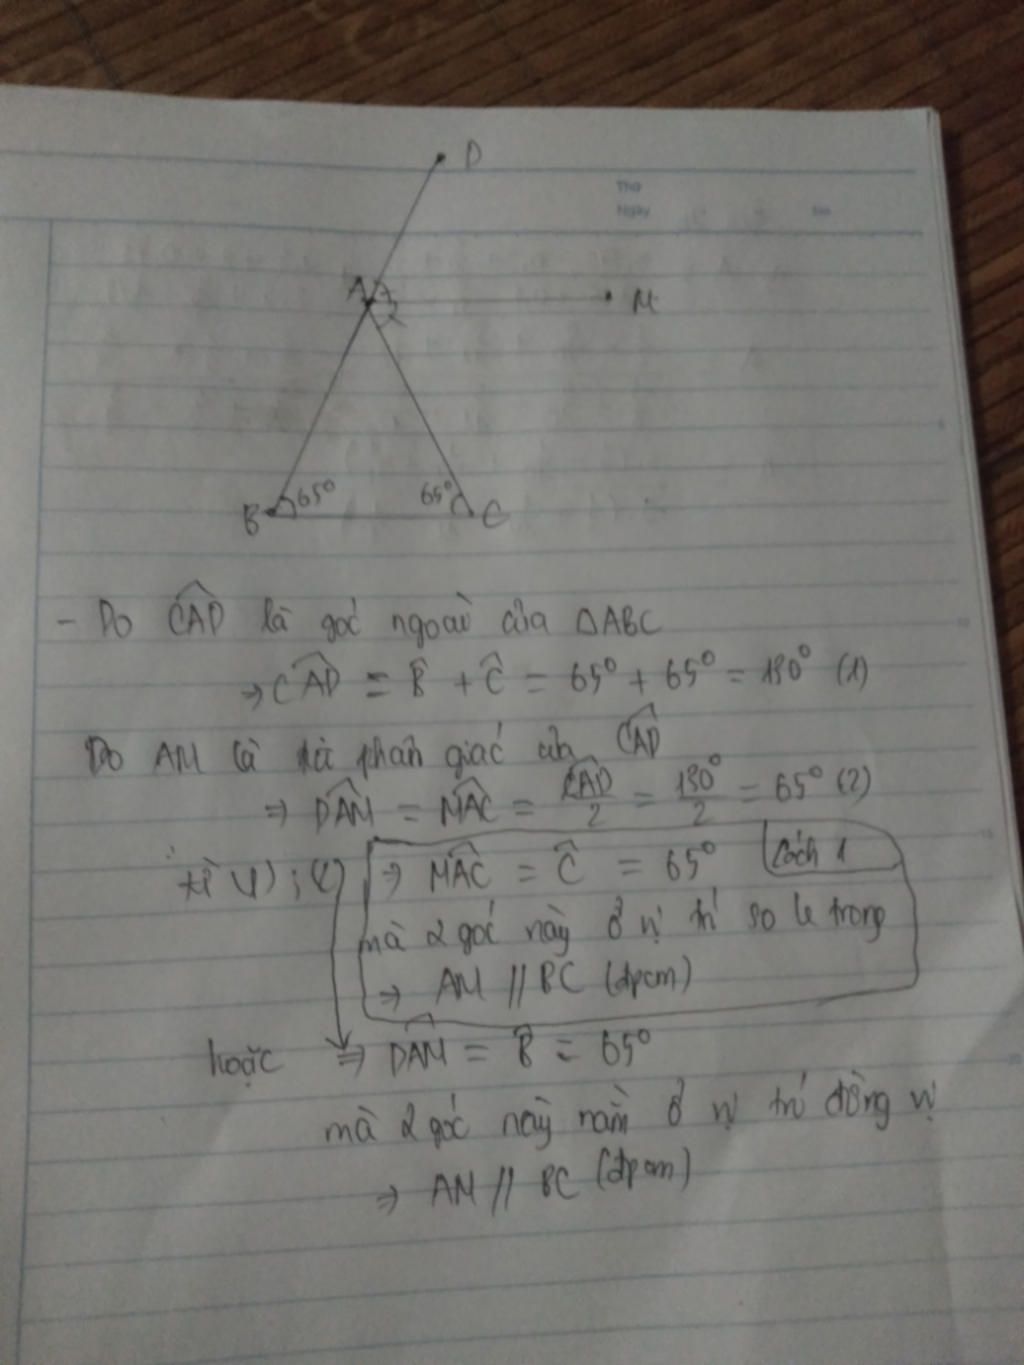 D
Thứ
Ngày
No
A
M
B 65° 65° C
- Do CAD là góc ngoài của ΔABC
⇒ CAD = B + C = 65° + 65° = 130° (1)
Do AM là tia phân giác của CAD
⇒ DAM = MAC = CAD/2 = 130°/2 = 65° (2)
từ (1) ; (2) ⇒ MAC = C = 65° Cách 1
mà 2 góc này ở vị trí so le trong
⇒ AM // BC (đpcm)
hoặc ⇒ DAM = B = 65°
mà 2 góc này nằm ở vị trí đồng vị
⇒ AM // BC (đpcm)